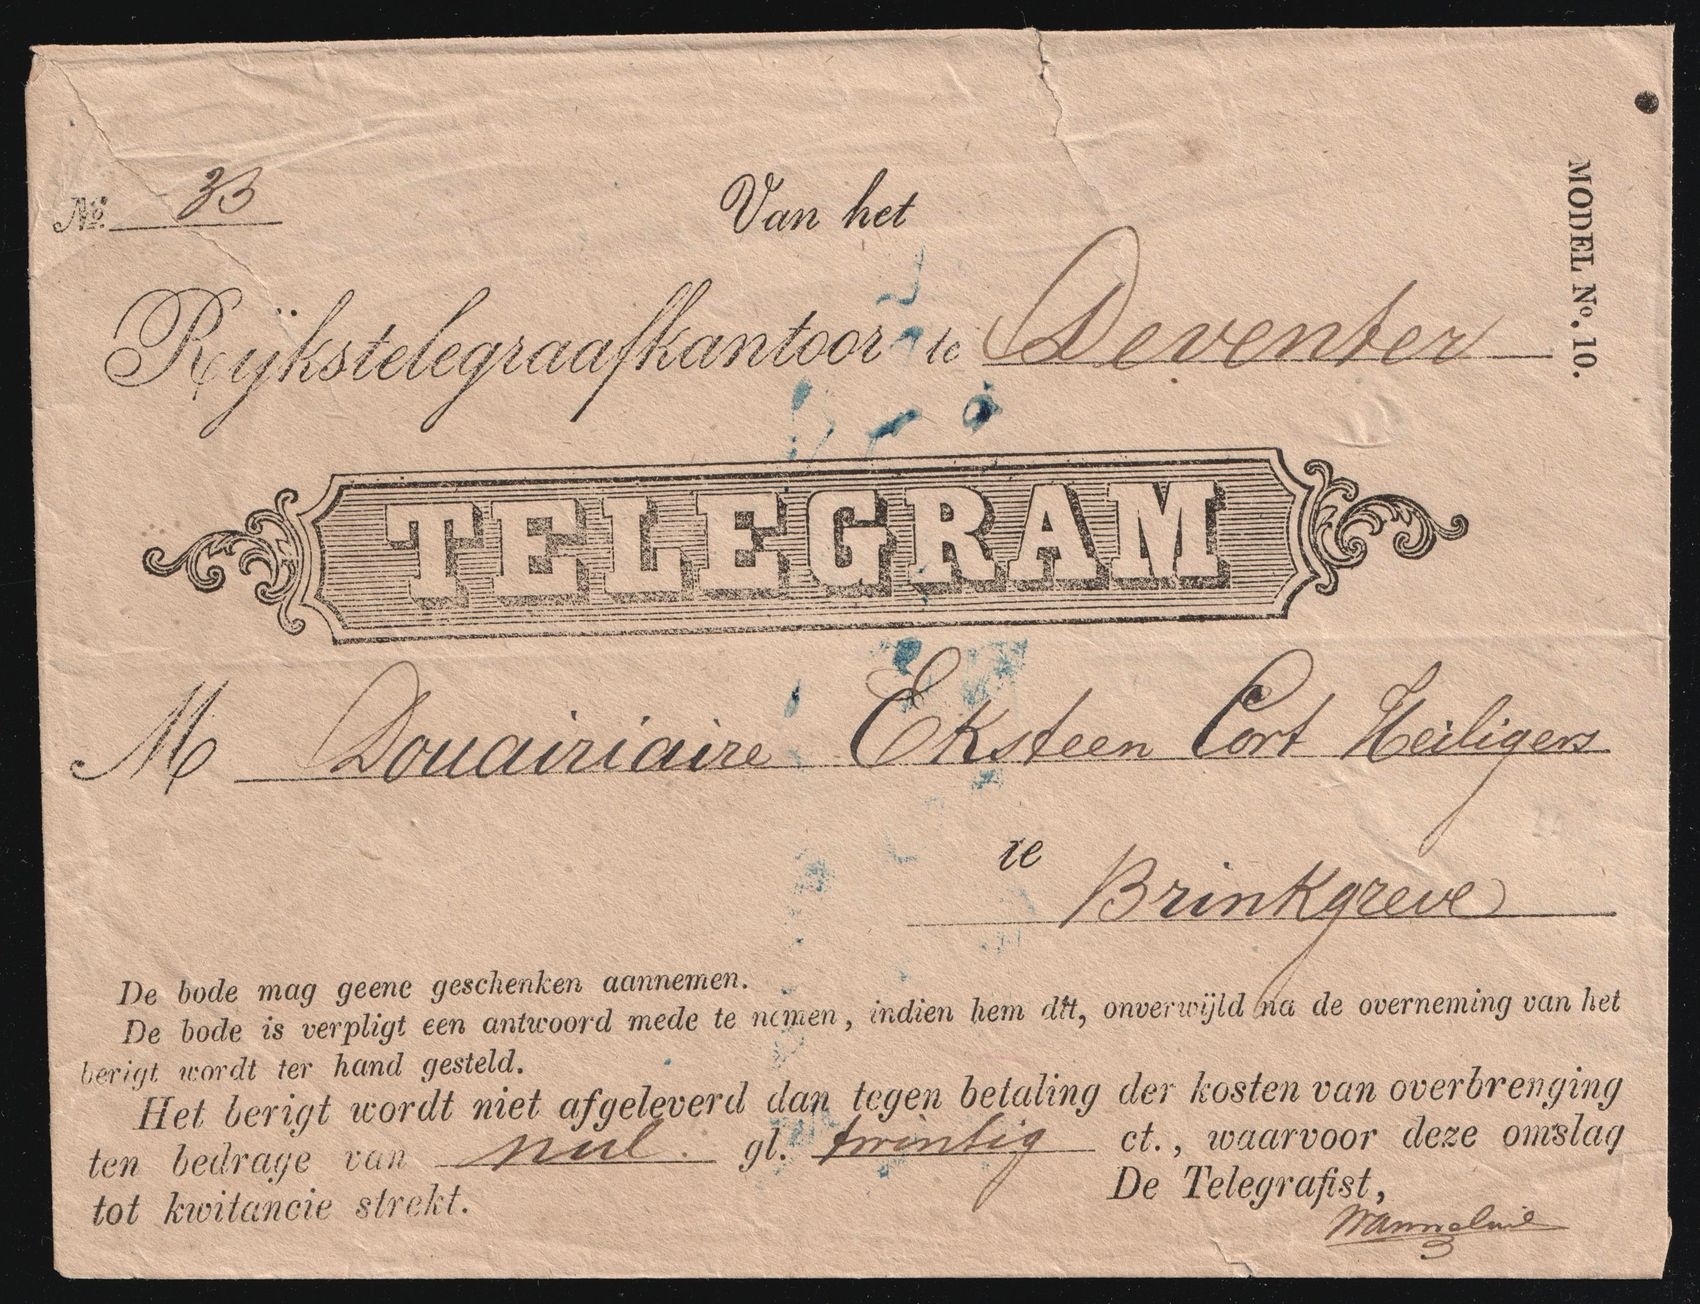 No. 33
Van het
MODEL No. 10.
Rijkstelegraafkantoor te Deventer
TELEGRAM
M Douairiaire Eksteen Cort Heiligers
te Brinkgreve
De bode mag geene geschenken aannemen.
De bode is verpligt een antwoord mede te nemen, indien hem dit, onverwijld na de overneming van het
berigt wordt ter hand gesteld.
Het berigt wordt niet afgeleverd dan tegen betaling der kosten van overbrenging
ten bedrage van nul. gl. twintig ct., waarvoor deze omslag
tot kwitancie strekt.
De Telegrafist,